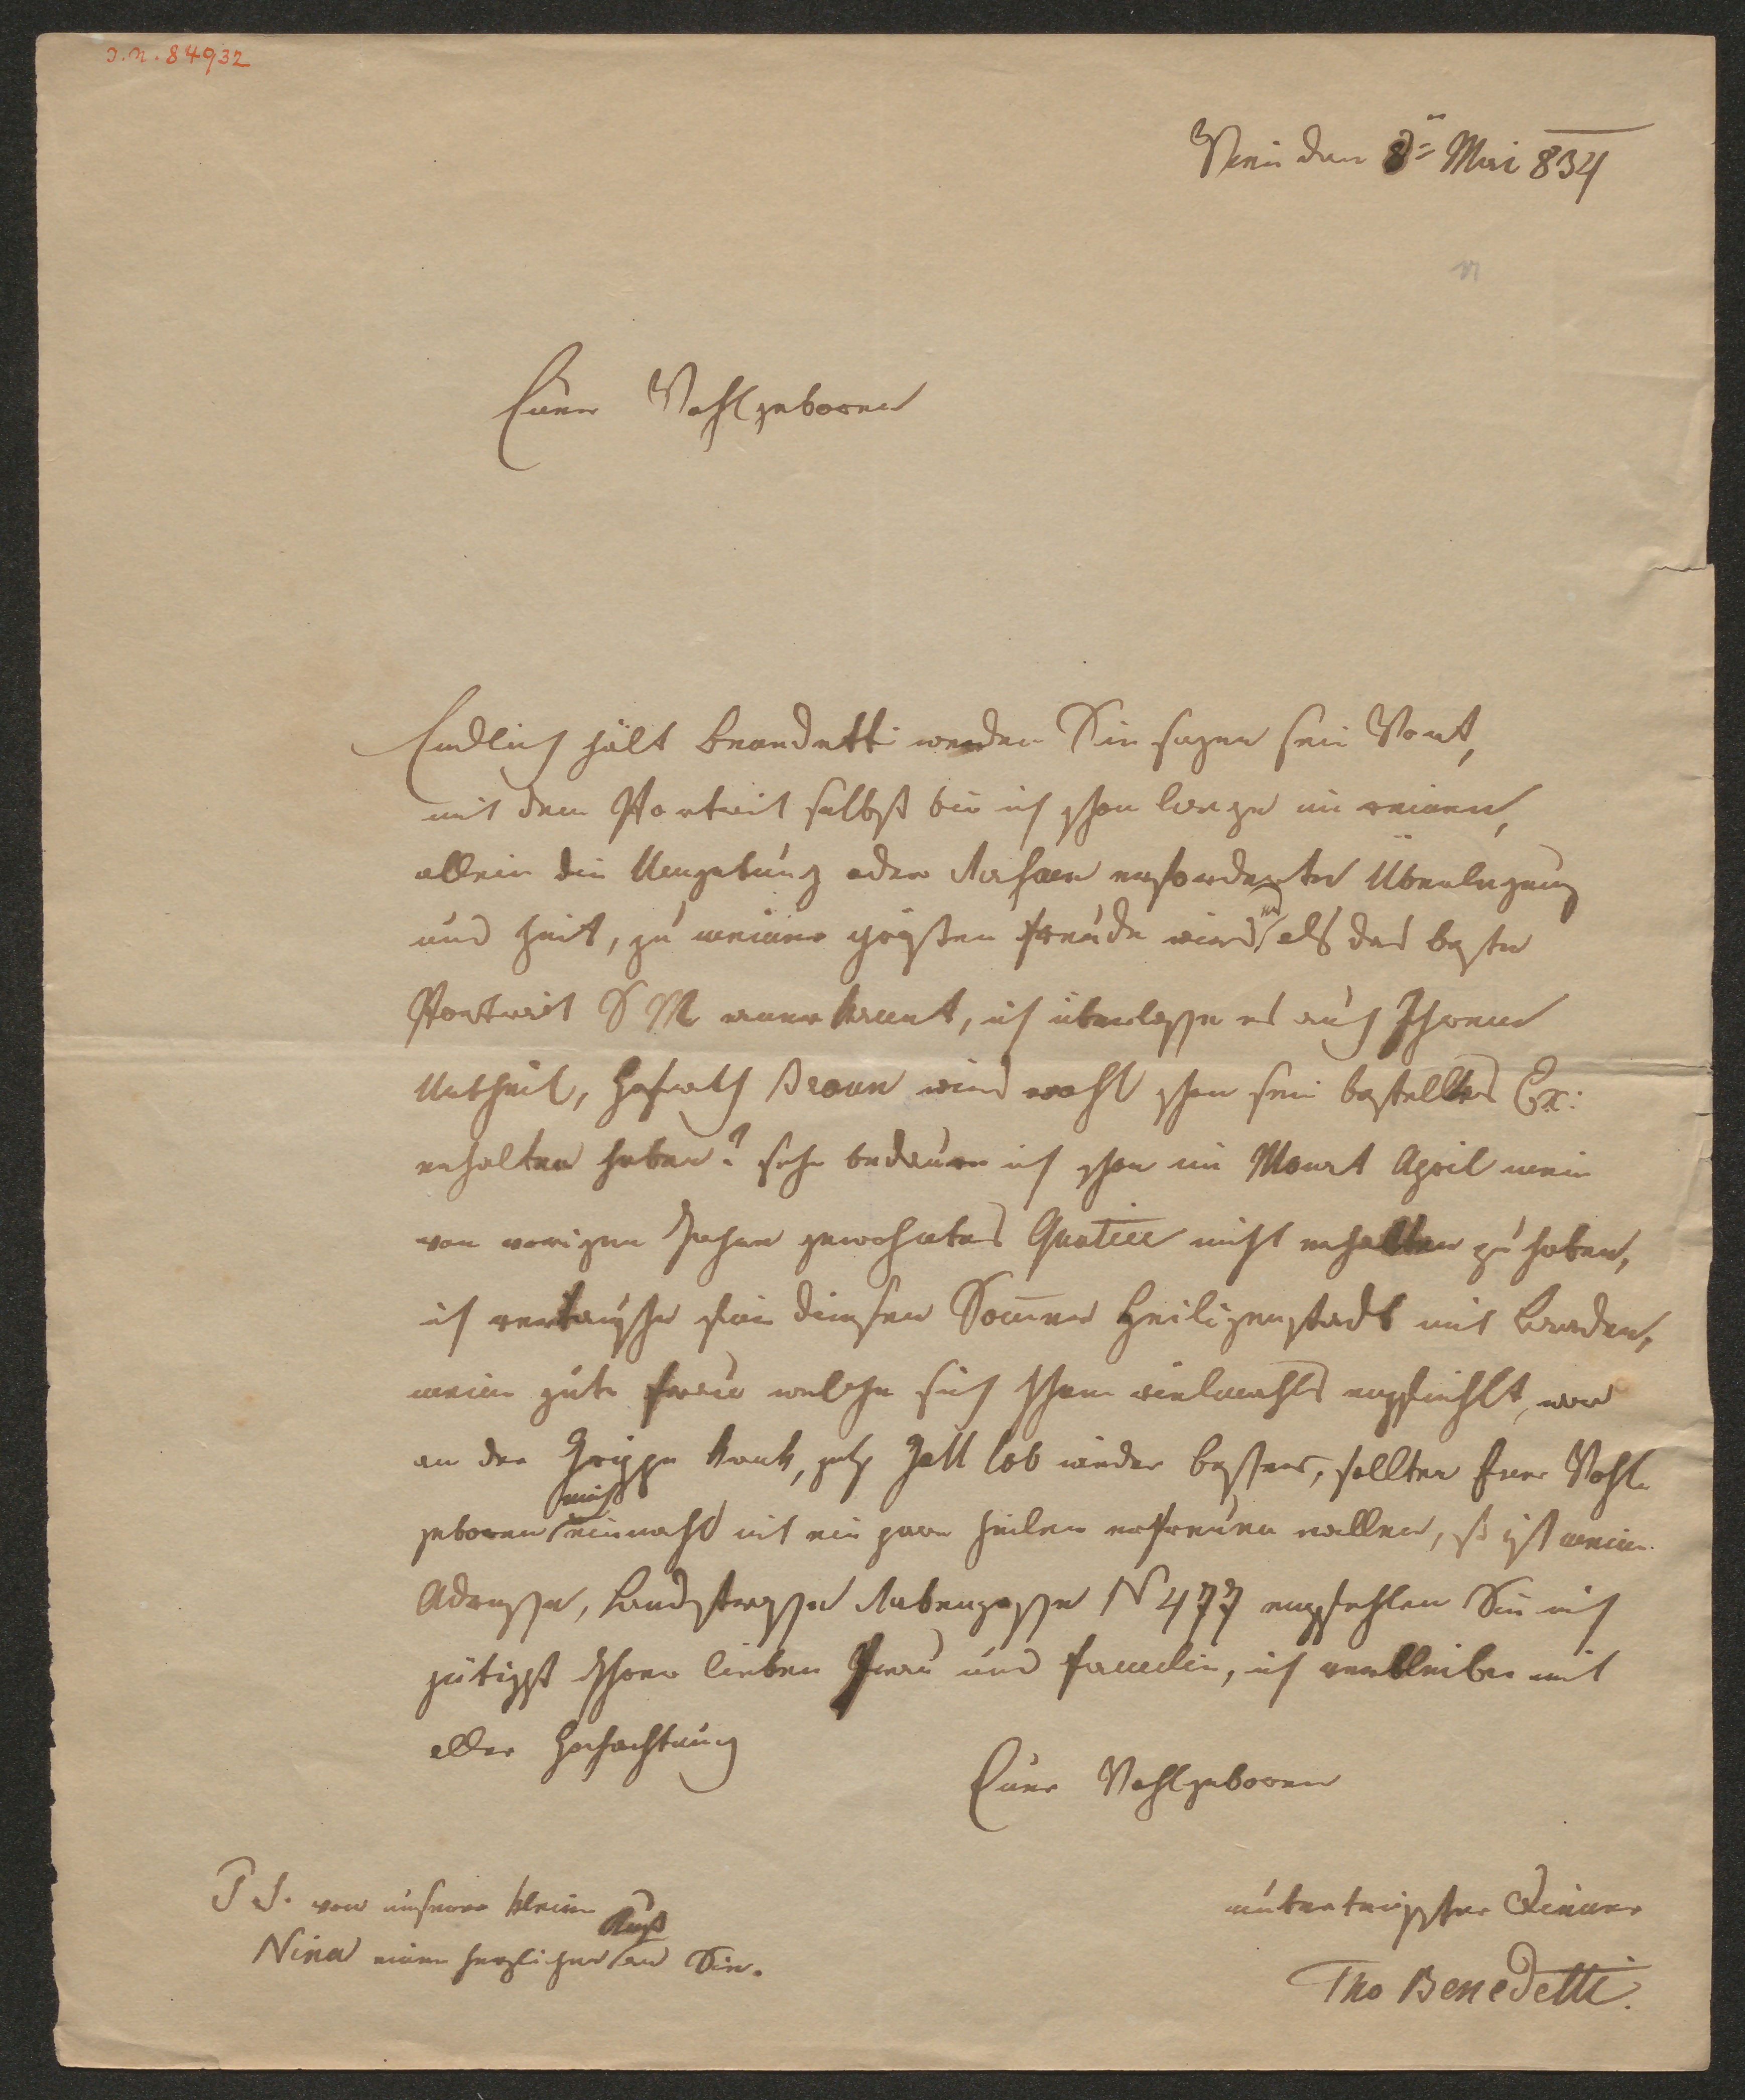 J.N. 84932
Wien den 8=ten Mai 834
Euer Wohlgeboren
Endlich hält Benedetti werden Sie sagen sein Wort,
mit dem Portrait selbst bin ich schon lange im reinen,
allein die Umgebung oder Rahmen erforderte Überlegung
und Zeit, zu meiner grösten Freude wird es als das beste
Portrait S M anerkannt, ich überlasse es auch Ihrem
Urtheil, Hofrath Braun wird wohl schon sein bestelltes Ex:
erhalten haben? sehr bedaure ich schon im Monat April mein
von vorigen Jahre gewohntes Quartier nicht erhalten zu haben,
ich vertausche für diesen Som̅er Heiligenstadt mit Baaden,
meine gute Frau welche sich Ihnen vielmahls empfiehlt, war
an der Grippe krank, jetz Gott lob wieder besser, sollten Euer Wohl-
geboren mich einmahl mit ein paar Zeilen erfreuen wollen, so ist meine
Adresse, Landstrasse Rabengasse N 477 empfehlen Sie mich
gütigst Ihrer lieben Frau und Familie, ich verbleibe mit
aller Hochachtung
Euer Wohlgeboren
unterthänigster Diener
Tho Benedetti.
P.S. von unserer kleine
Nina einen herzlichen Kuß an Sie.